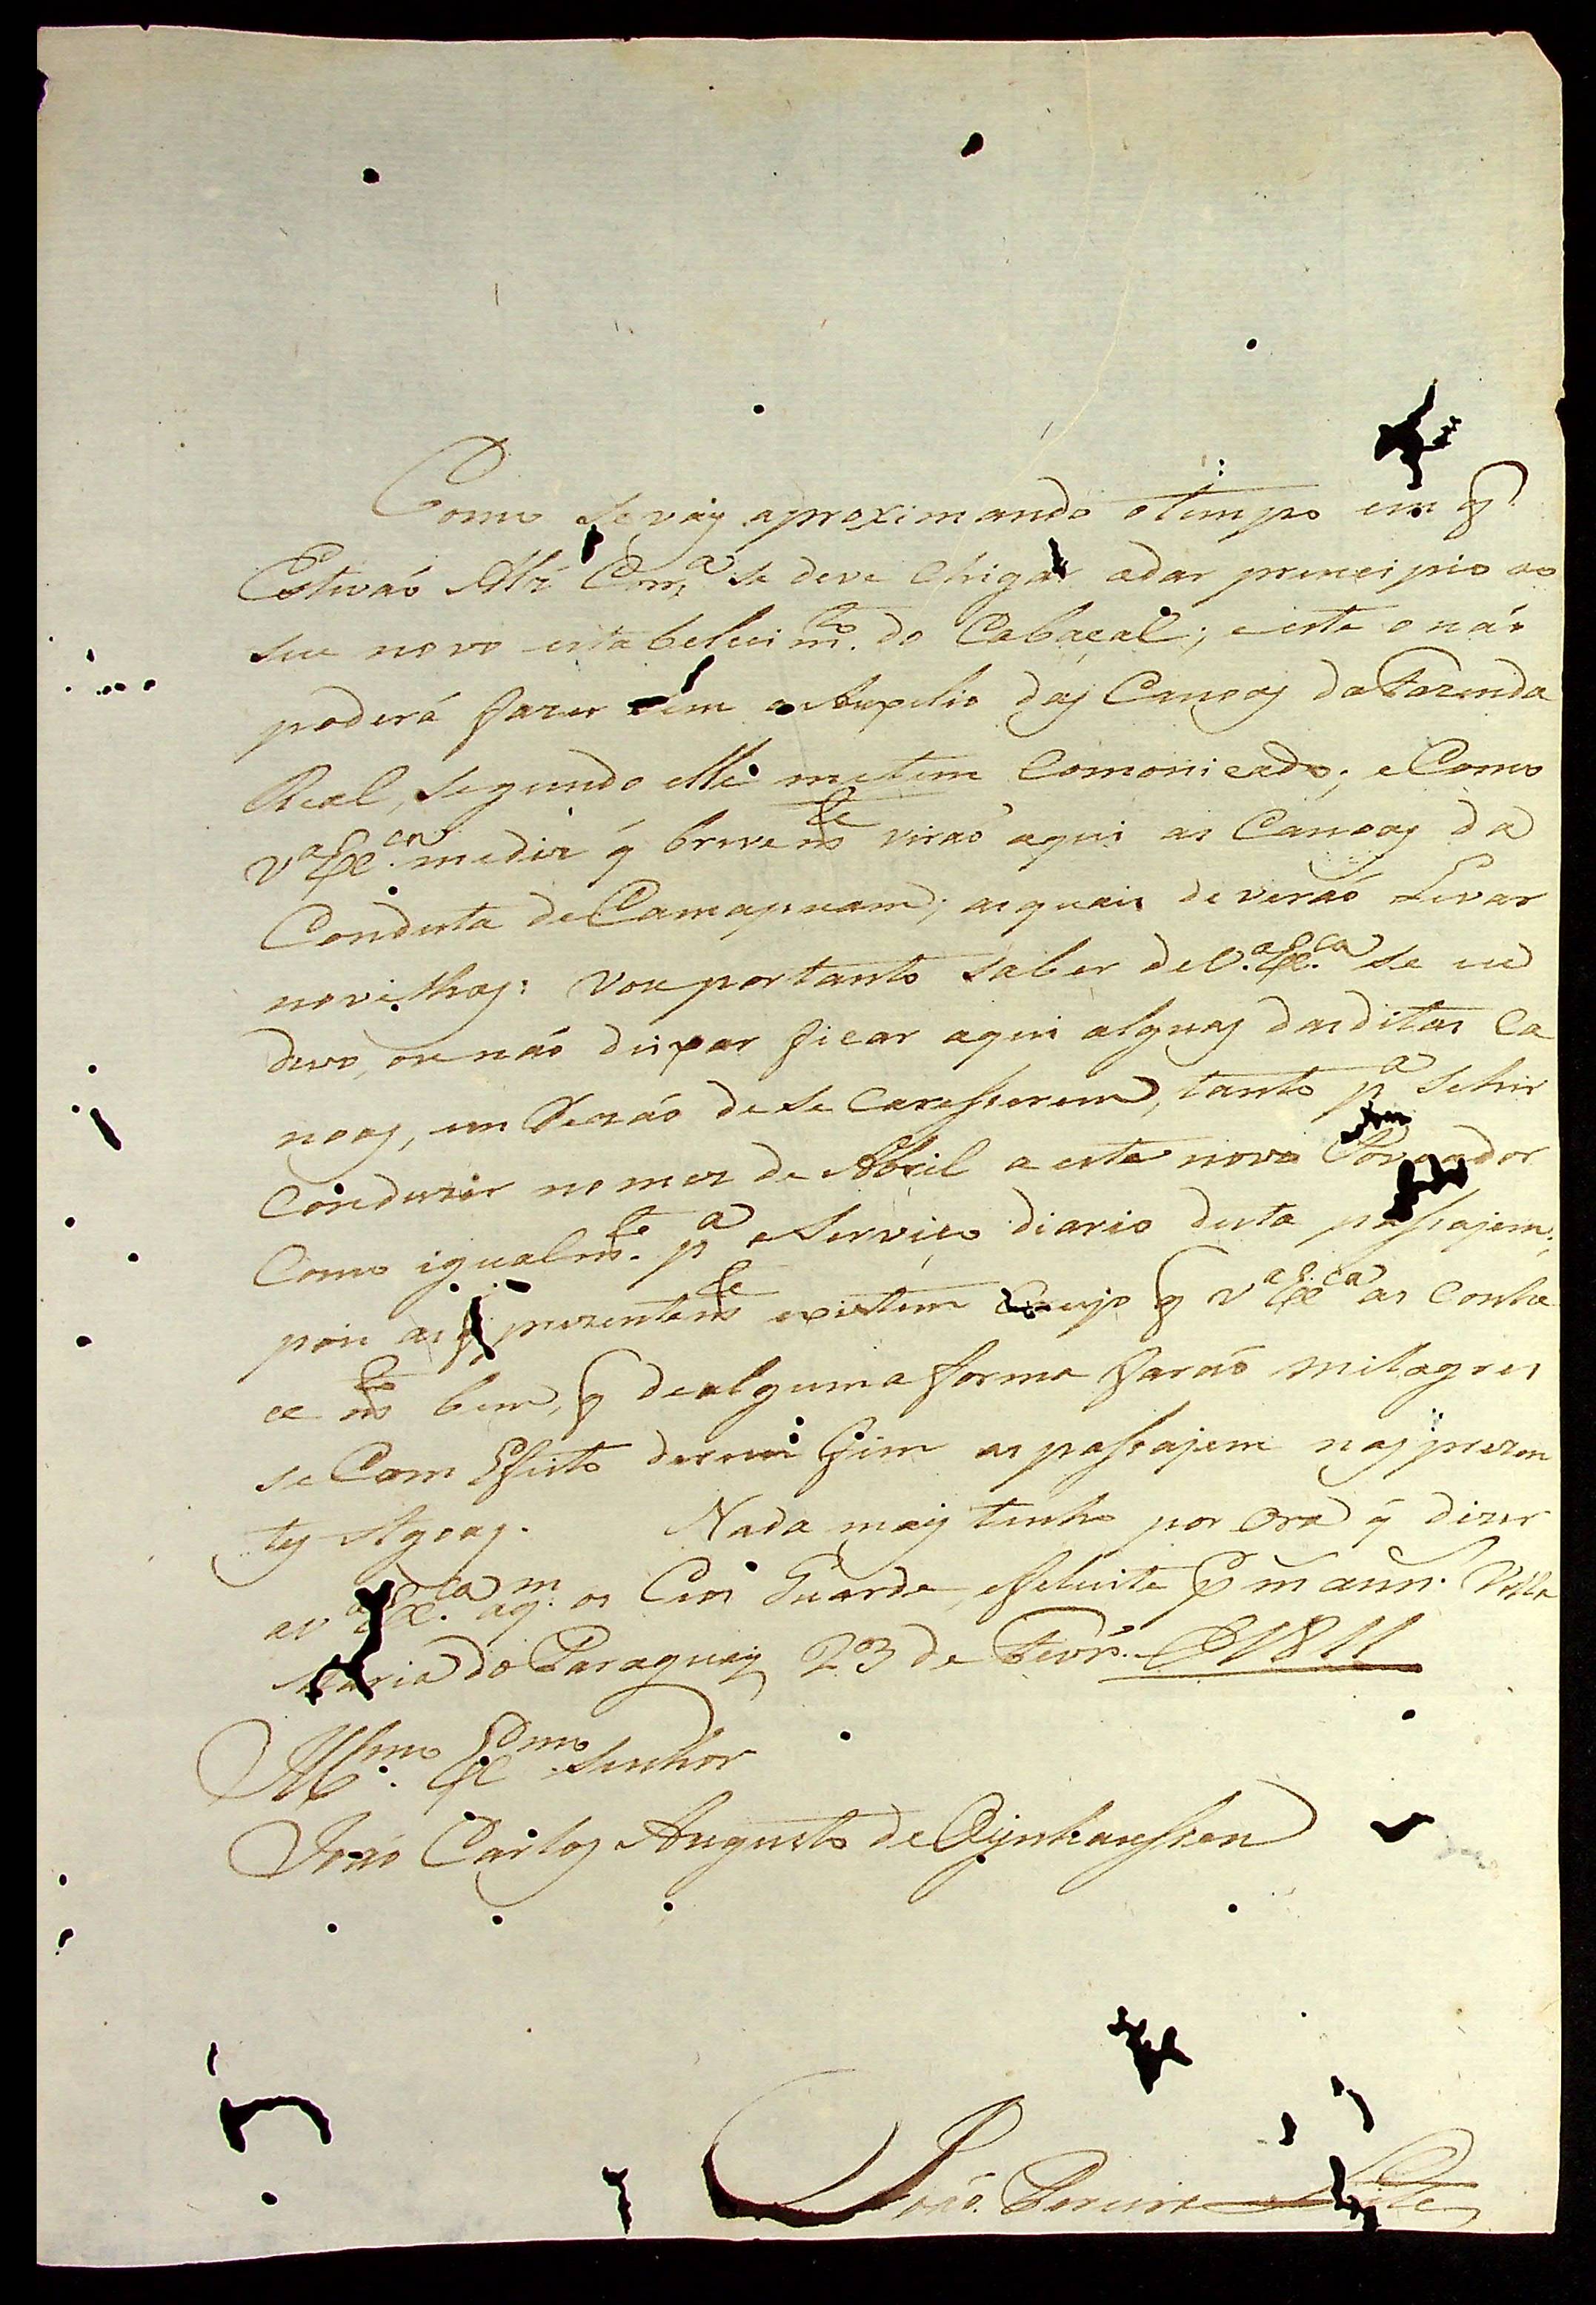 Como se vay aproximando o tempo em q̃
Estevaõ Alz̃ Corr.ª se deve chigar adar principio ao
seu novo estabelecim.to do Cabaçal; e este o naõ
poderá fazer sem o Auxilio das Canoas da Fazenda
Real, segundo elle metem Comonicado; e Como
V.ª Ex.cia mediz q̃ brevem.te viraõ aqui as Canoas da
Conduta de Camapuam; as quais deveraõ Levar
novilhas: Vou portanto saber de V.ª Ex.cia se eu
devo, ou naõ deixar ficar aqui algúas das ditas Ca
noas, em Rezaõ de se caresserem, tanto p.ª sehir
Conduzir no mez de Abril a este novo Povoador
Como igualm.te p.ª o Serviço diario desta passajem;
pois as q̃ prezentem.te existem Cujo q̃ V.ª Ex.cia as conhe
ce m.to bem, q̃ dealguma forma faraõ milagres
se Com Efeito derem fim as passajem nas prezen
tes Agoas. Nada mais tenho por ora q̃ dizer
a V.ª Ex.cia aq.m os Ceos Guarde, efelecite p.r m.s ann.s Villa
Maria do Paraguay 23 de Fevr.º de 1811
Ill.mo Ex.mo Senhor
Joaõ Carlos Augusto de Oÿnhaussen
Joaõ Pereira Leite